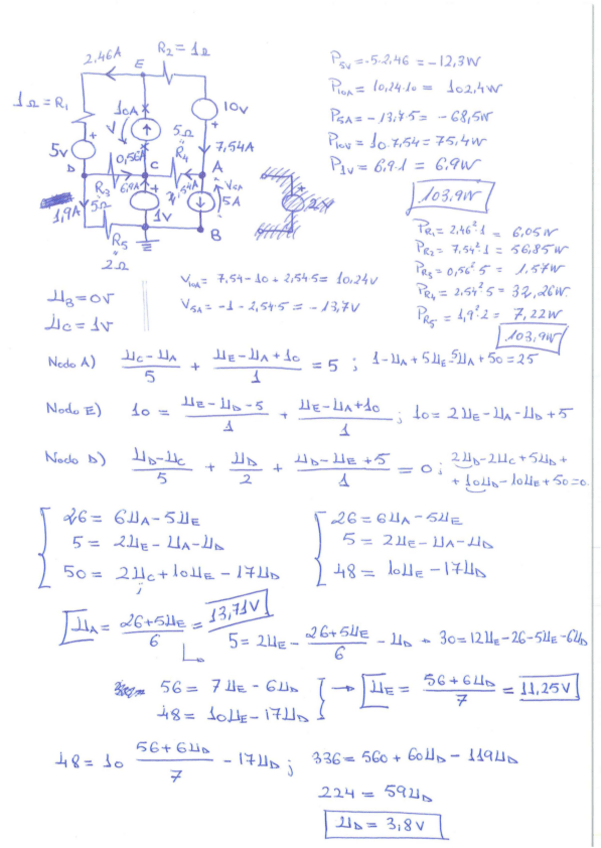 2.46A
E
R2 = 1Ω
1Ω = R1
10A
V
10V
5Ω
R4
7,54A
5V
0,56A
D
C
A
R3
5Ω
6.9A
2,54A
V5A
5A
1,9A
1V
R5
2Ω
B
P5V = -5·2,46 = -12,3W
P10A = 10,24·10 = 102,4W
P5A = -13,7·5 = -68,5W
P10V = 10·7,54 = 75,4W
P1V = 6,9·1 = 6,9W
103,9W
PR1 = 2,46²·1 = 6,05W
PR2 = 7,54²·1 = 56,85W
PR3 = 0,56²·5 = 1,57W
PR4 = 2,54²·5 = 32,26W
PR5 = 1,9²·2 = 7,22W
103,9W
V10A = 7,54 - 10 + 2,54·5 = 10,24V
V5A = -1 - 2,54·5 = -13,7V
UB = 0V
UC = 1V
Nodo A) (UC - UA)/5 + (UE - UA + 10)/1 = 5 ; 1 - UA + 5UE - 5UA + 50 = 25
Nodo E) 10 = (UE - UD - 5)/1 + (UE - UA + 10)/1 ; 10 = 2UE - UA - UD + 5
Nodo D) (UD - UC)/5 + UD/2 + (UD - UE + 5)/1 = 0 ; 2UD - 2UC + 5UD +
+ 10UD - 10UE + 50 = 0
26 = 6UA - 5UE
5 = 2UE - UA - UD
50 = 2UC + 10UE - 17UD
26 = 6UA - 5UE
5 = 2UE - UA - UD
48 = 10UE - 17UD
UA = (26 + 5UE)/6 = 13,71V
5 = 2UE - (26 + 5UE)/6 - UD - 30 = 12UE - 26 - 5UE - 6UD
56 = 7UE - 6UD
48 = 10UE - 17UD
→ UE = (56 + 6UD)/7 = 11,25V
48 = 10 (56 + 6UD)/7 - 17UD ; 336 = 560 + 60UD - 119UD
224 = 59UD
UD = 3,8V